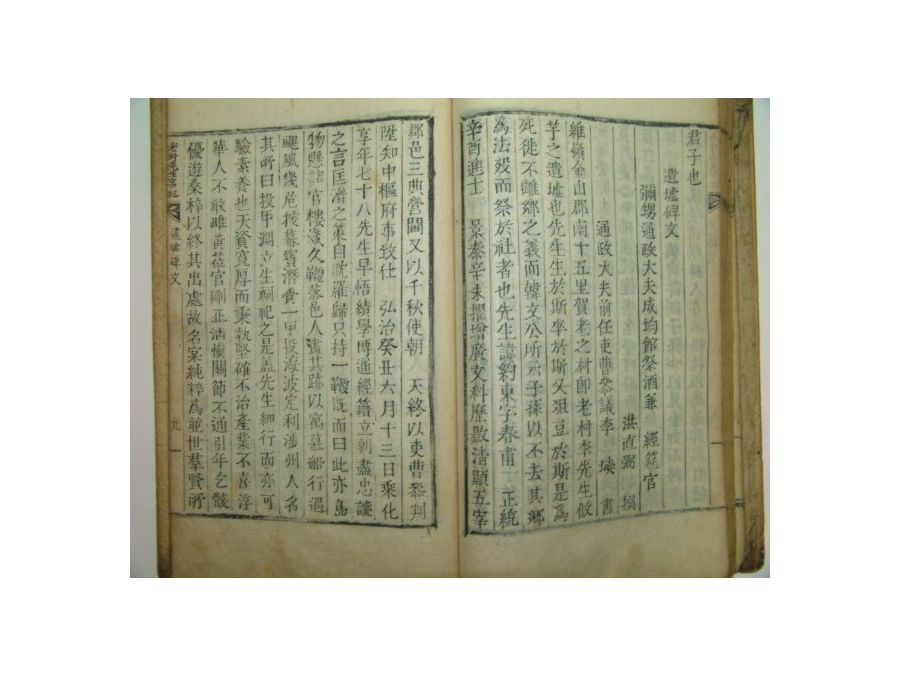 君子也
遺墟碑文
彌甥通政大夫成均館祭酒兼 經筵官
洪直弼 撰
通政大夫前任吏曹參議李 書
維嶺金山郡南十五里賀老之村即老村李先生攸
芋之遺墟也先生生於斯卒於斯又俎豆於斯是為
死徙不離鄉之義而韓文公所云子孫以不去其鄉
為法歿而祭於社者也先生諱約東字春甫 正統
辛酉進士 景泰辛未擢增廣文科歷敭清顯五宰
郡邑三典營閫又以千秋使朝 天終以吏曹參判
陞知中樞府事致仕 弘治癸丑六月十三日乘化
享年七十八先生早悟績學博通經籍立朝盡忠讜
之言匡濟之策自耽羅歸只持一鞭既而曰此亦島
物懸諸官樓淺久鞭落邑人畫其跡以寓慕船行遇
颶風幾危按幕賓潛賫一甲投海波定利涉州人名
其所曰投甲淵立生祠祀之是盖先生細行而亦可
驗素養也天資寬厚而秉執堅確不治產業不喜浮
華人不敢雌黃莅官剛正清儉關節不通引年乞骸
優遊桑梓以終其出處故名宲純粹為並世羣賢所
老村先生實紀 遺墟碑文 九